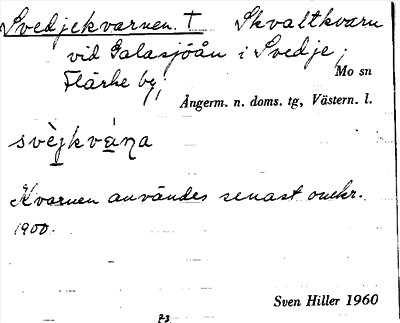 Svedjekvarnen. † Skvaltkvarn
vid Galasjöån i Svedje,
Flärke by,
Mo sn
Ångerm. n. doms. tg, Västern. l.
svèjkvána
Kvarnen användes senast omkr.
1900.
Sven Hiller 1960
73